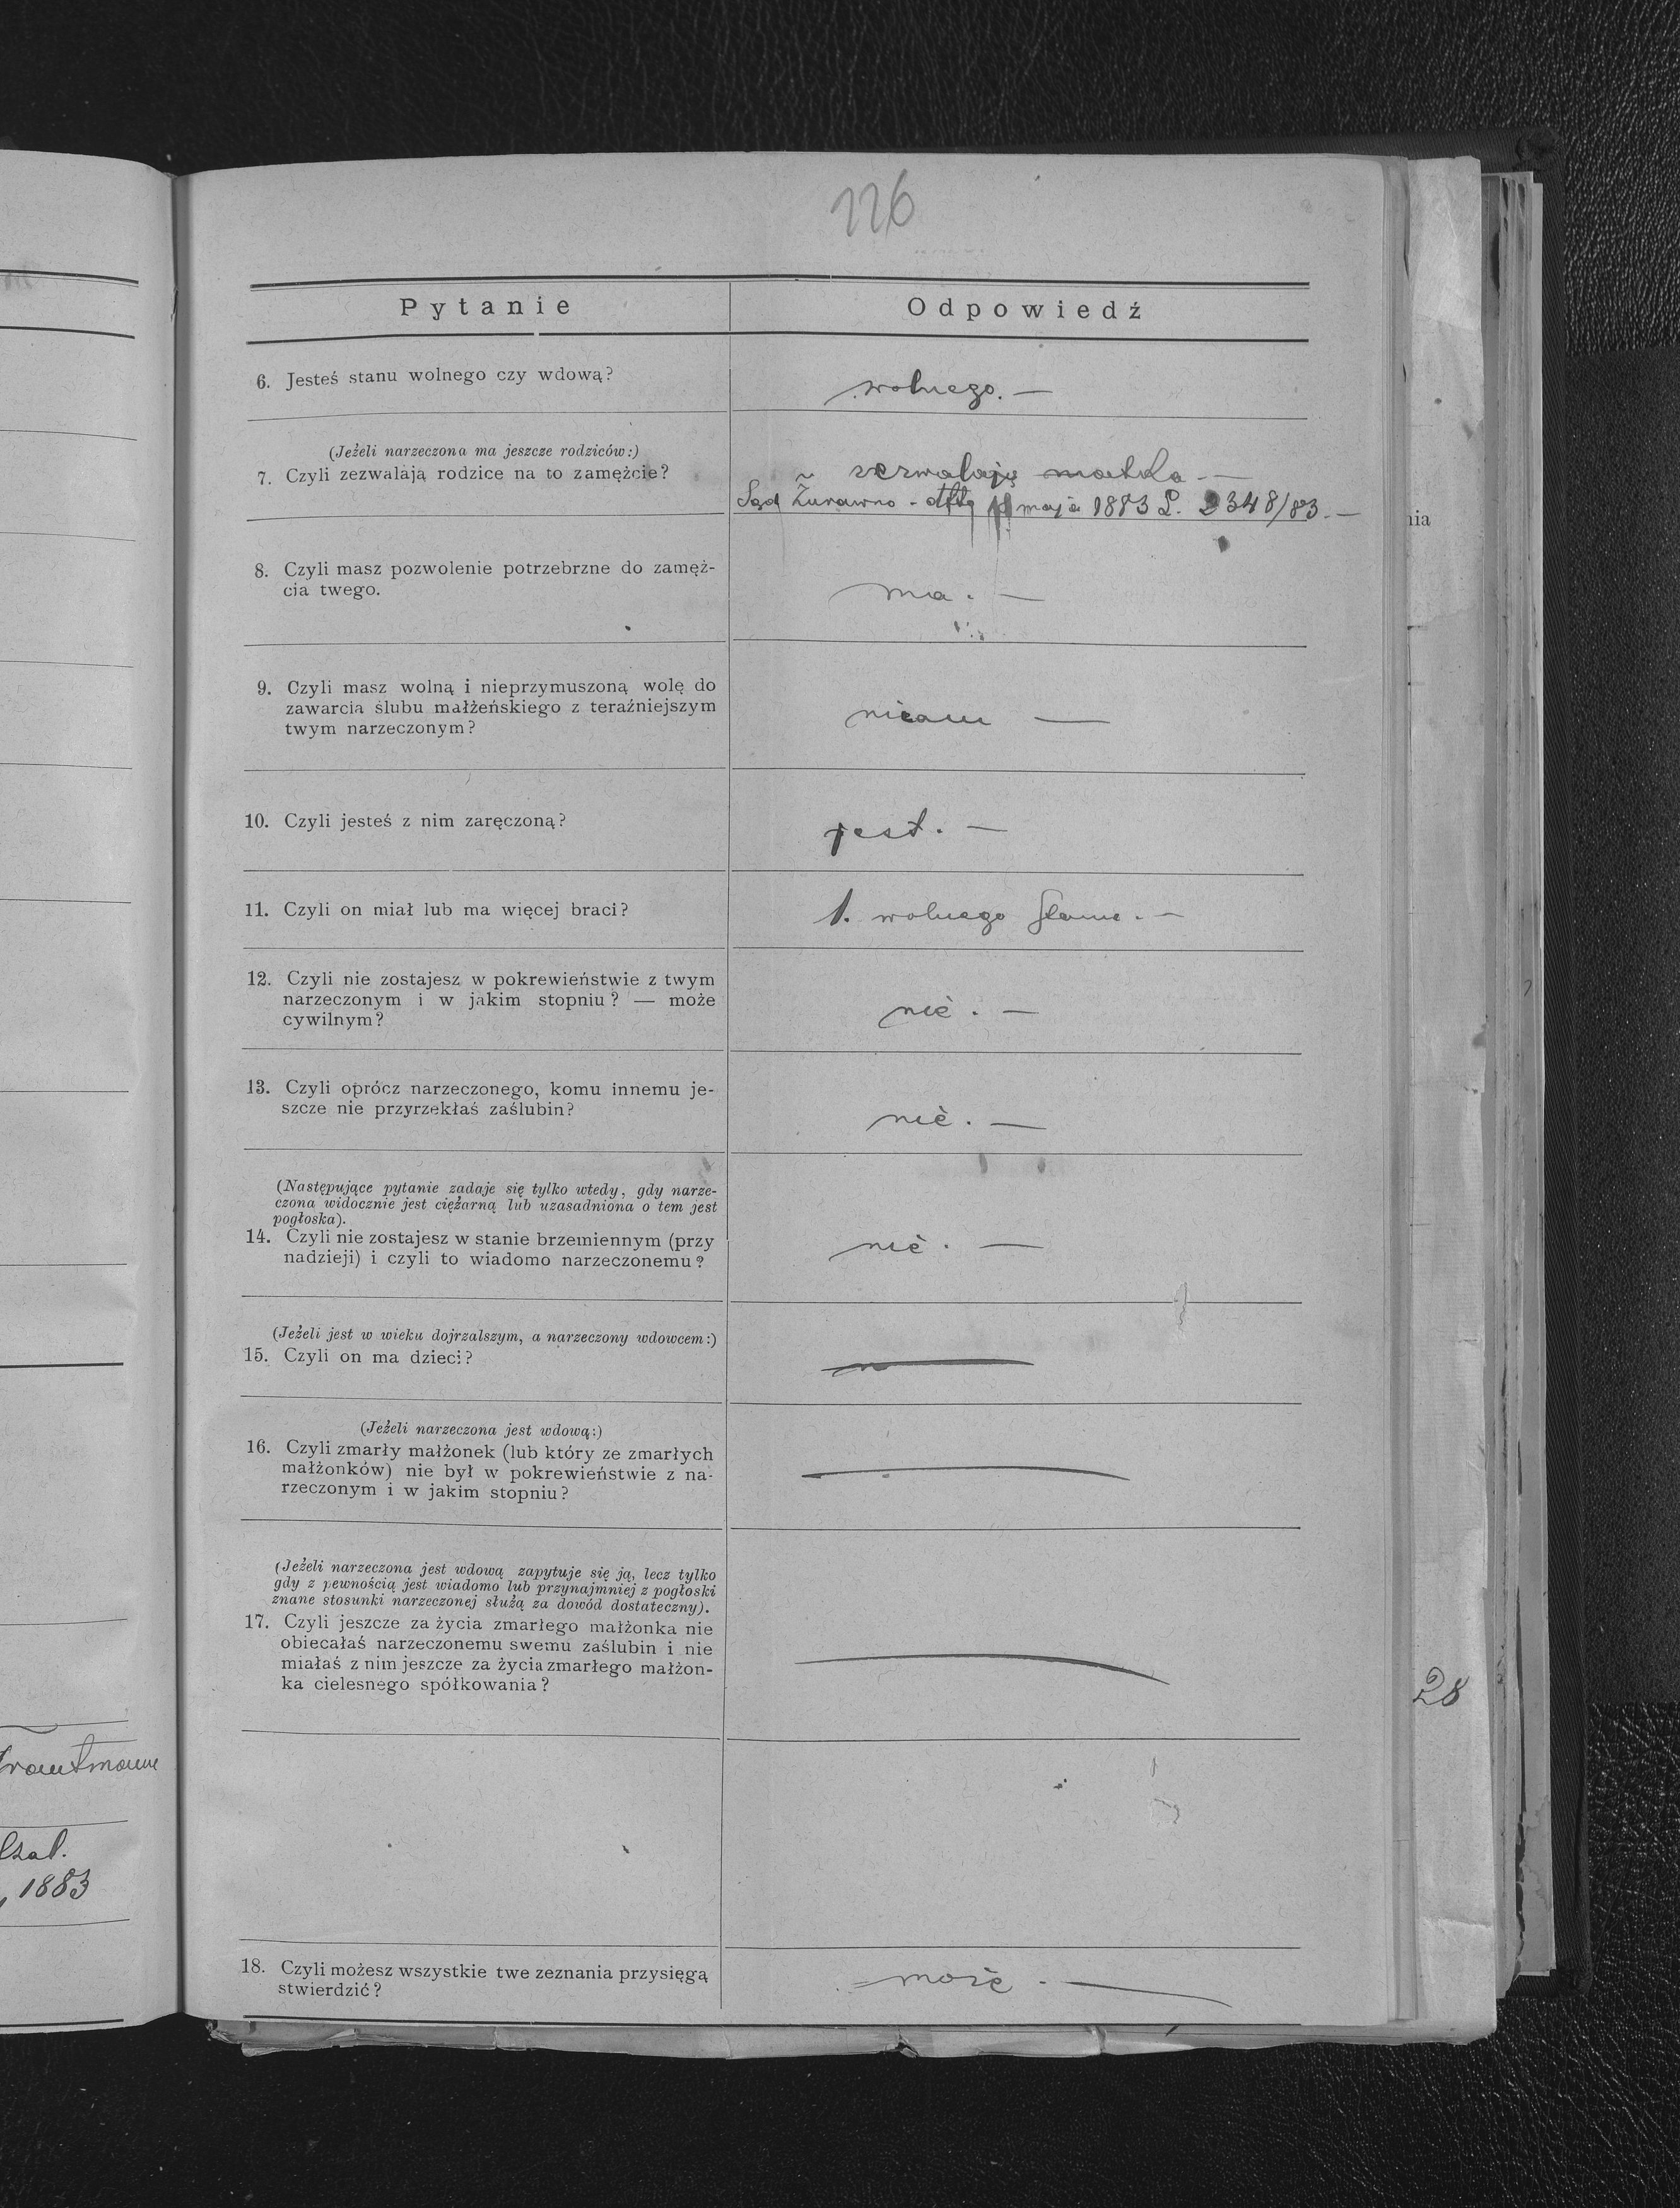 126
Pytanie
Odpowiedź
6. Jesteś stanu wolnego czy wdową?
wolnego. —
(Jeżeli narzeczona ma jeszcze rodziców:)
7. Czyli zezwalają rodzice na to zamężcie?
zezwalają matka —
Sąd Żurawno - maja 1883 L. 2348/83. —
8. Czyli masz pozwolenie potrzebrzne do zamęż-
cia twego.
ma. —
9. Czyli masz wolną i nieprzymuszoną wolę do
zawarcia ślubu małżeńskiego z teraźniejszym
twym narzeczonym?
—
10. Czyli jesteś z nim zaręczoną?
jest. —
11. Czyli on miał lub ma więcej braci?
1. wolnego —
12. Czyli nie zostajesz w pokrewieństwie z twym
narzeczonym i w jakim stopniu? — może
cywilnym?
nie. —
13. Czyli oprócz narzeczonego, komu innemu je-
szcze nie przyrzekłaś zaślubin?
nie. —
(Następujące pytanie zadaje się tylko wtedy, gdy narze-
czona widocznie jest ciężarną lub uzasadniona o tem jest
pogłoska).
14. Czyli nie zostajesz w stanie brzemiennym (przy
nadzieji) i czyli to wiadomo narzeczonemu?
nie. —
(Jeżeli jest w wieku dojrzalszym, a narzeczony wdowcem:)
15. Czyli on ma dzieci?
(Jeżeli narzeczona jest wdową:)
16. Czyli zmarły małżonek (lub który ze zmarłych
małżonków) nie był w pokrewieństwie z na-
rzeczonym i w jakim stopniu?
(Jeżeli narzeczona jest wdową zapytuje się ją, lecz tylko
gdy z pewnością jest wiadomo lub przynajmniej z pogłoski
znane stosunki narzeczonej służą za dowód dostateczny).
17. Czyli jeszcze za życia zmarłego małżonka nie
obiecałaś narzeczonemu swemu zaślubin i nie
miałaś z nim jeszcze za życia zmarłego małżon-
ka cielesnego spółkowania?
18. Czyli możesz wszystkie twe zeznania przysięgą
stwierdzić?
może. —
1883
nia
28